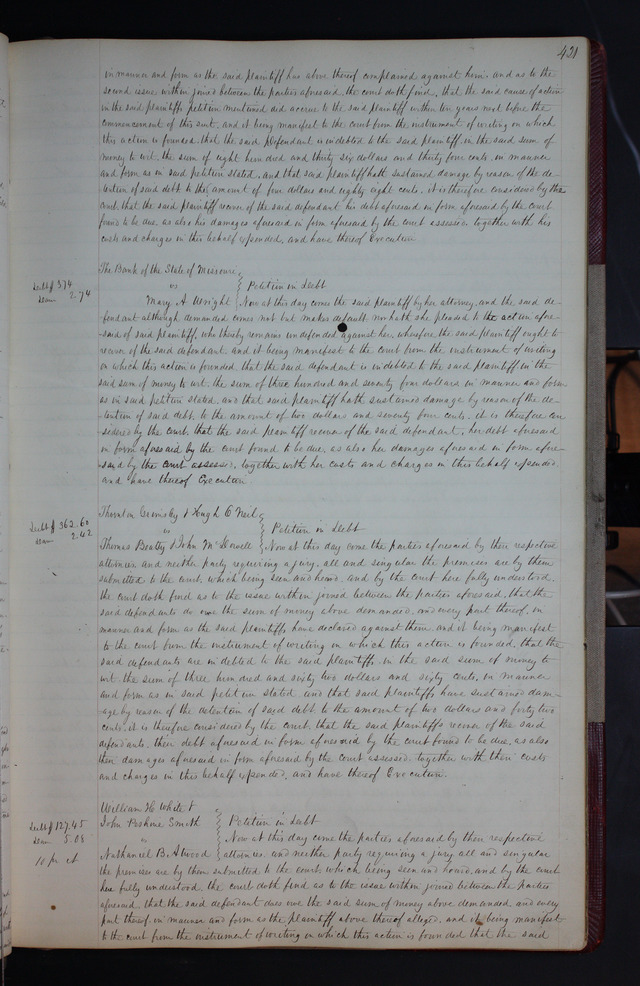 421
in manner and form as the said plaintiff has above thereof complained against him. and as to the
second issue within joined between the parties aforesaid, the court doth find, that the said cause of action
in the said plaintiffs petition mentioned did accrue to the said plaintiff within ten years next before the
commencement of this suit, and it being manifest to the court from the instrument of writing on which
this action is founded, that the said defendant is indebted to the said plaintiff, in the said sum of
money to wit, the sum of eight hundred and thirty six dollars and thirty four cents, in manner
and form as in said petition stated, and that said plaintiff hath sustained damage by reason of the de-
tention of said debt to the amount of four dollars and eighty eight cents. it is therefore considered by the
court, that the said plaintiff recover of the said defendant his debt aforesaid in form aforesaid by the court
found to be due, as also his damages aforesaid in form aforesaid by the court assessed together with his
costs and charges in this behalf expended, and have thereof Execution
The Bank of the State of Missouri
Debt $ 374
vs Petition in Debt
Dam 2.74
Mary A Wright Now at this day comes the said plaintiff by her attorney, and the said de-
fendant although demanded comes not but makes default nor hath she pleaded to the action afore-
said of said plaintiff, who thereby remains undefended against her, wherefore the said plaintiff ought to
recover of the said defendant and it being manifest to the court from the instrument of writing
on which this action is founded, that the said defendant is indebted to the said plaintiff in the
said sum of money to wit, the sum of three hundred and seventy four dollars in manner and form
as in said petition stated, and that said plaintiff hath sustained damage by reason of the de-
tention of said debt, to the amount of two dollars and seventy four cents. it is therefore con
sidered by the court, that the said plaintiff recover of the said defendant, her debt aforesaid
in form aforesaid by the court found to be due, as also her damages aforesaid in form afore-
said by the court assessed, together with her costs and charges in this behalf expended
and have thereof Execution
Thornton Grimsley & Hugh O Neil
Debt $ 362.60
vs Petition in Debt
Dam 2.42
Thomas Beatty & John McDowell Now at this day come the parties aforesaid by their respective
attornies and neither party requiring a jury, all and singular the premises are by them
submitted to the court, which being seen and heard, and by the court here fully understood,
the court doth find as to the issue within joined between the parties aforesaid, that the
said defendants do owe the sum of money above demanded, and every part thereof, in
manner and form as the said plaintiffs, have declared against them, and it being manifest
to the court from the instrument of writing on which this action is founded, that the
said defendants are indebted to the said plaintiffs, in the said sum of money to
wit, the sum of three hundred and sixty two dollars and sixty cents, in manner
and form as in said petition stated, and that said plaintiffs have sustained dam-
age by reason of the detention of said debt to the amount of two dollars and forty two
cents. it is therefore considered by the court, that the said plaintiffs recover of the said
defendants, their debt aforesaid in form aforesaid by the court found to be due, as also
their damages aforesaid in form aforesaid by the court assessed, together with their costs
and charges in this behalf expended, and have thereof Execution.
William H White &
Debt $ 127.45
John Poshore Smith Petition in Debt
Dam 5.08
vs Now at this day come the parties aforesaid by their respective
10 pr ct
Nathaniel B. Atwood attornies, and neither party requiring a jury all and singular
the premises are by them submitted to the court which being seen and heard, and by the court
here fully understood, the court doth find as to the issue within joined between the parties
aforesaid, that the said defendant does owe the said sum of money above demanded and every
part thereof, in manner and form as the plaintiff above thereof alleged, and it being manifest
to the court from the instrument of writing on which this action is founded that the said